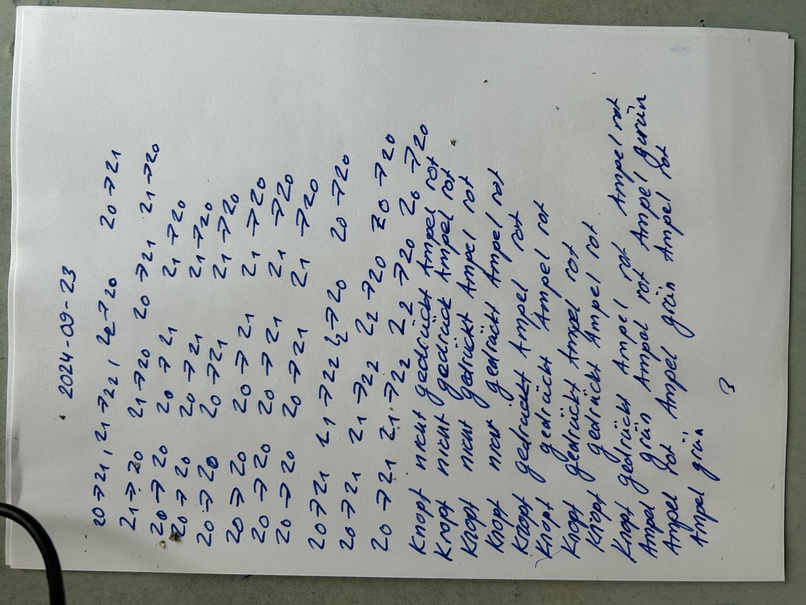 2024-09-23
20→21, 21→22, 22→20 20→21
21→20 21→20 20→21 21→20
20→20 20→21 21→20
20→20 20→21 21→20
20→20 20→21 21→20
20→20 20→21 21→20
20→20 20→21 21→20
20→20 20→21 21→20
20→21 21→22 22→20 20→20
20→21 21→22 22→20 20→20
20→21 21→22 22→20 20→20
Knopf nicht gedrückt Ampel rot
Knopf nicht gedrück Ampel rot
Knopf nicht gedrückt Ampel rot
Knopf nicht gedrückt Ampel rot
Knopf gedrückt Ampel rot
Knopf gedrückt Ampel rot
Knopf gedrückt Ampel rot
Knopf gedrückt Ampel rot
Knopf gedrückt Ampel rot Ampel rot
Ampel grün Ampel rot Ampel grün
Ampel rot Ampel grün Ampel rot
Ampel grün
3